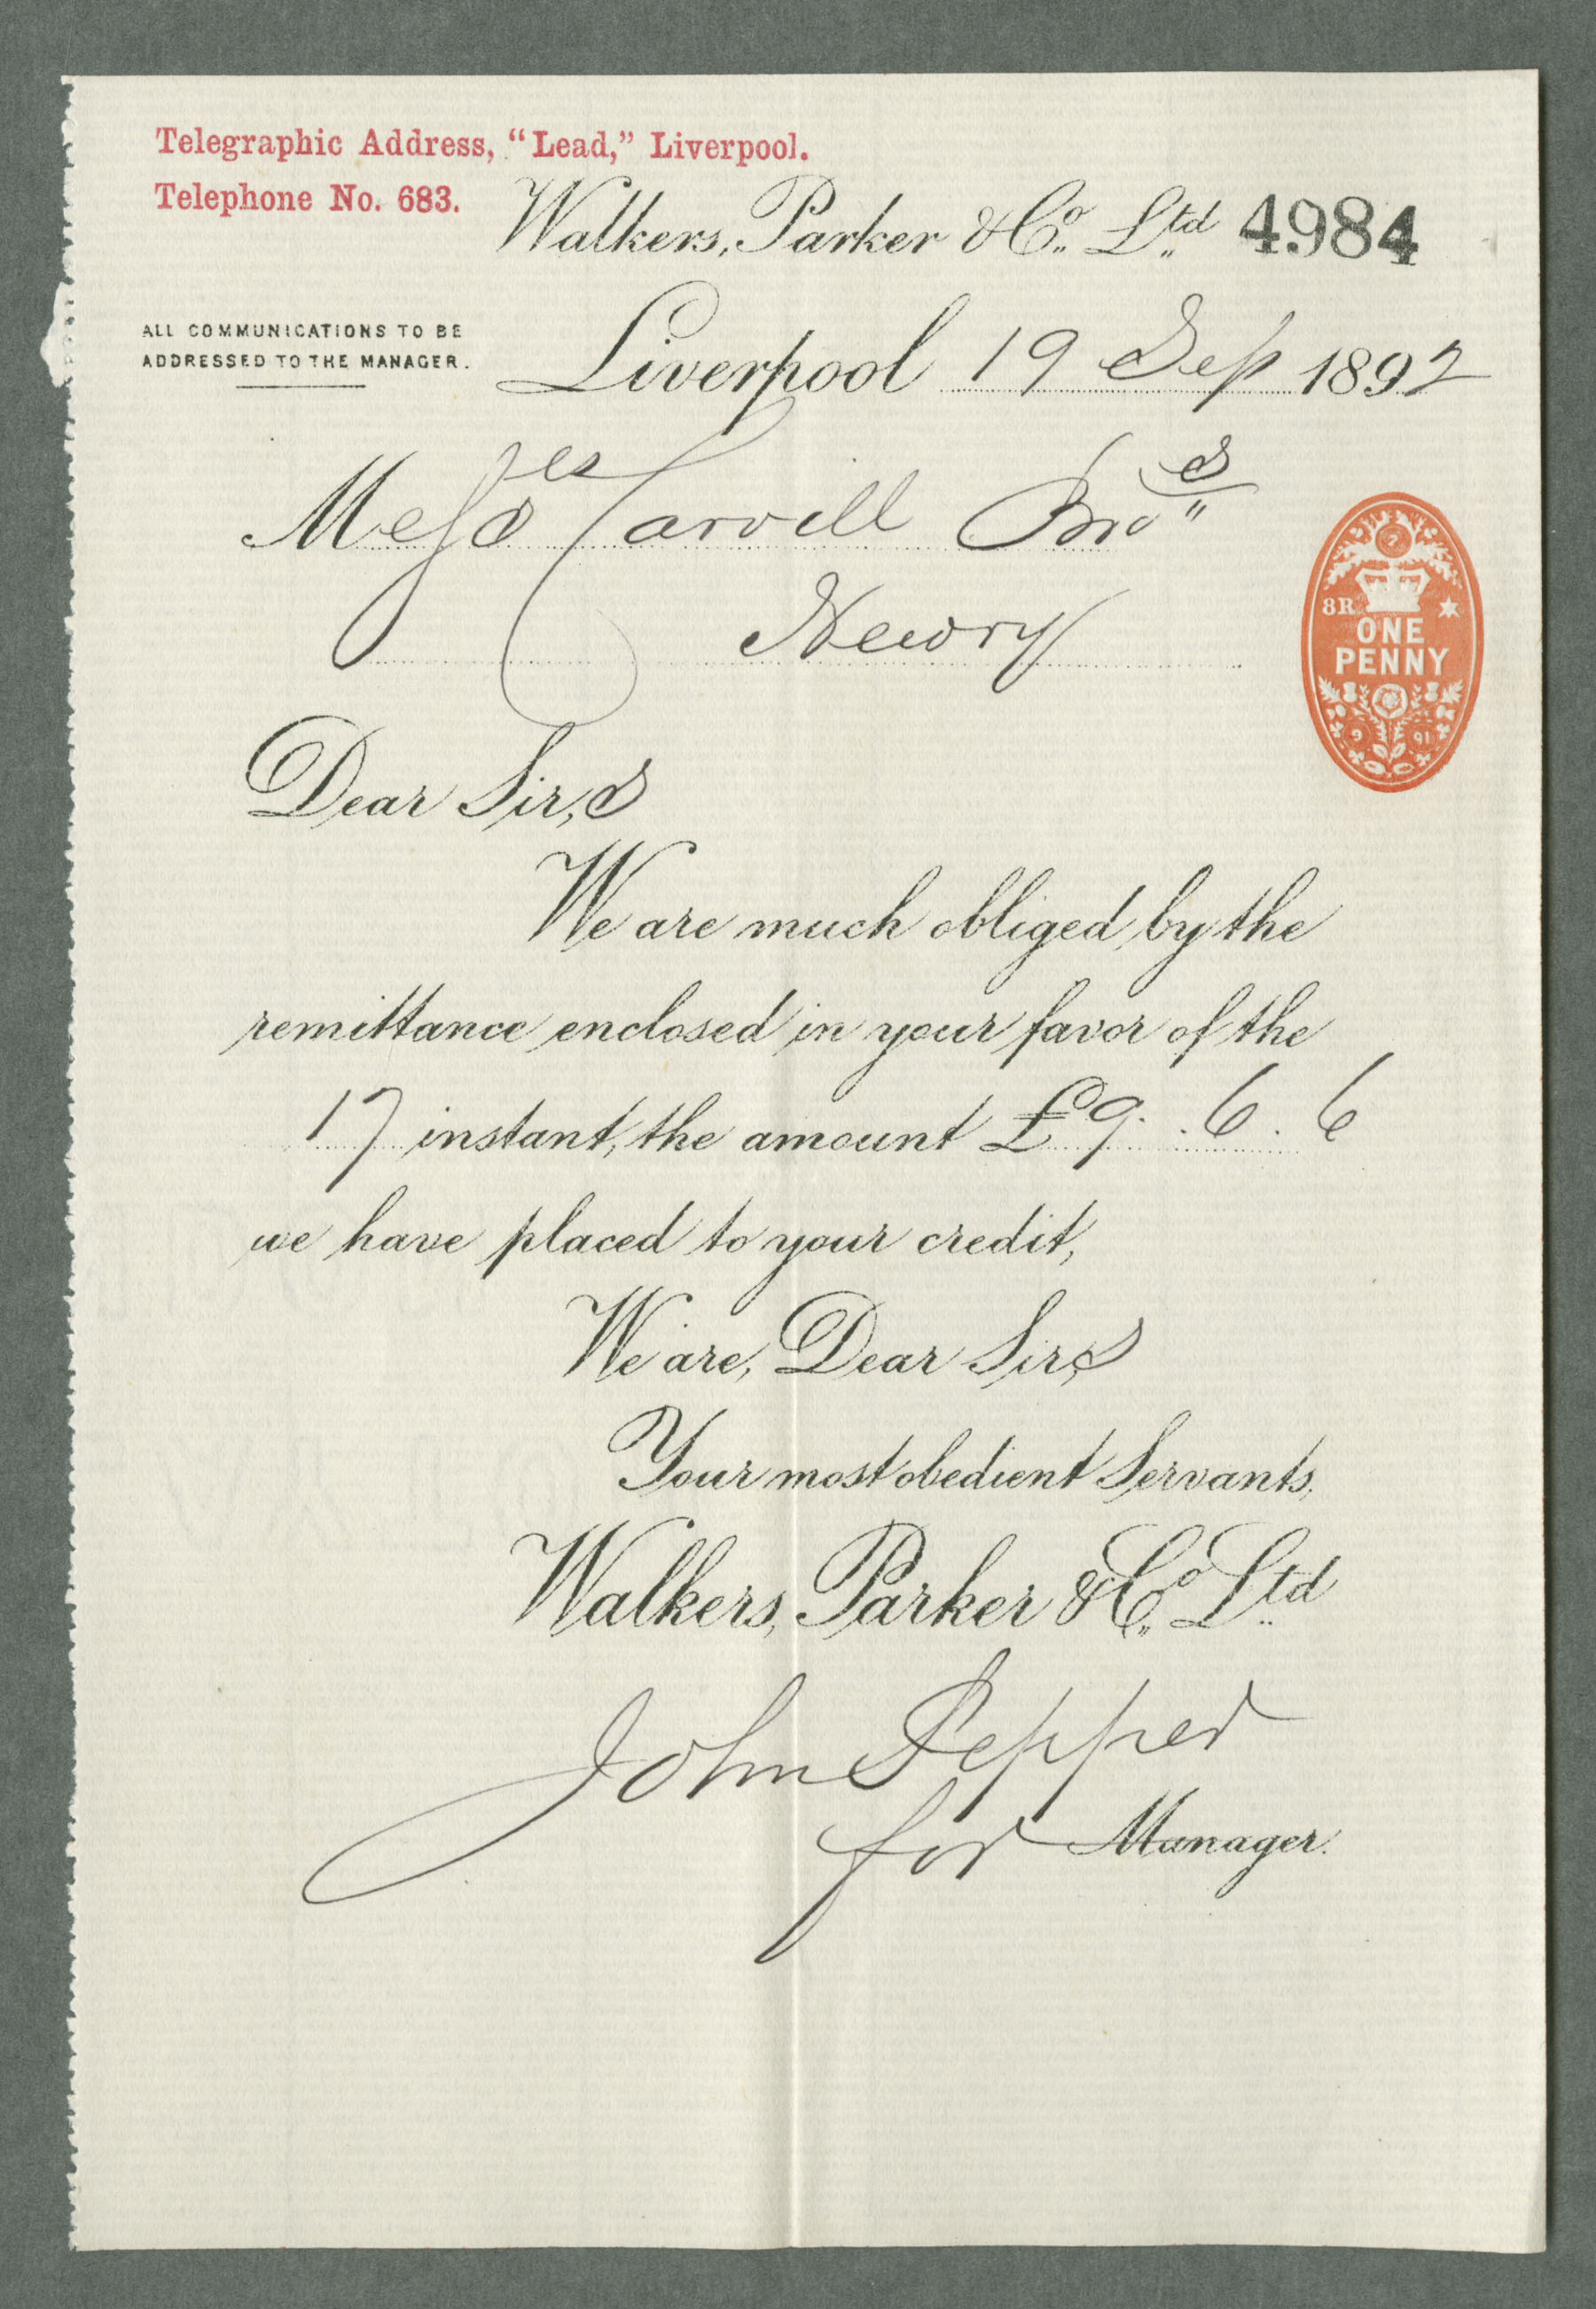 Telegraphic Address, "Lead," Liverpool.
Telephone No. 683.
Walkers, Parker & Co. Ltd 4984
ALL COMMUNICATIONS TO BE
ADDRESSED TO THE MANAGER.
Liverpool 19 Sep 1892
Messes Carvill Bros
Newry
8R
ONE
PENNY
9 91
Dear Sir,s
We are much obliged by the
remittance enclosed in your favor of the
17 instant, the amount £9. 6. 6
we have placed to your credit,
We are, Dear Sir,s
Your most obedient Servants,
Walkers, Parker & Co. Ltd
John Pepper
for Manager.